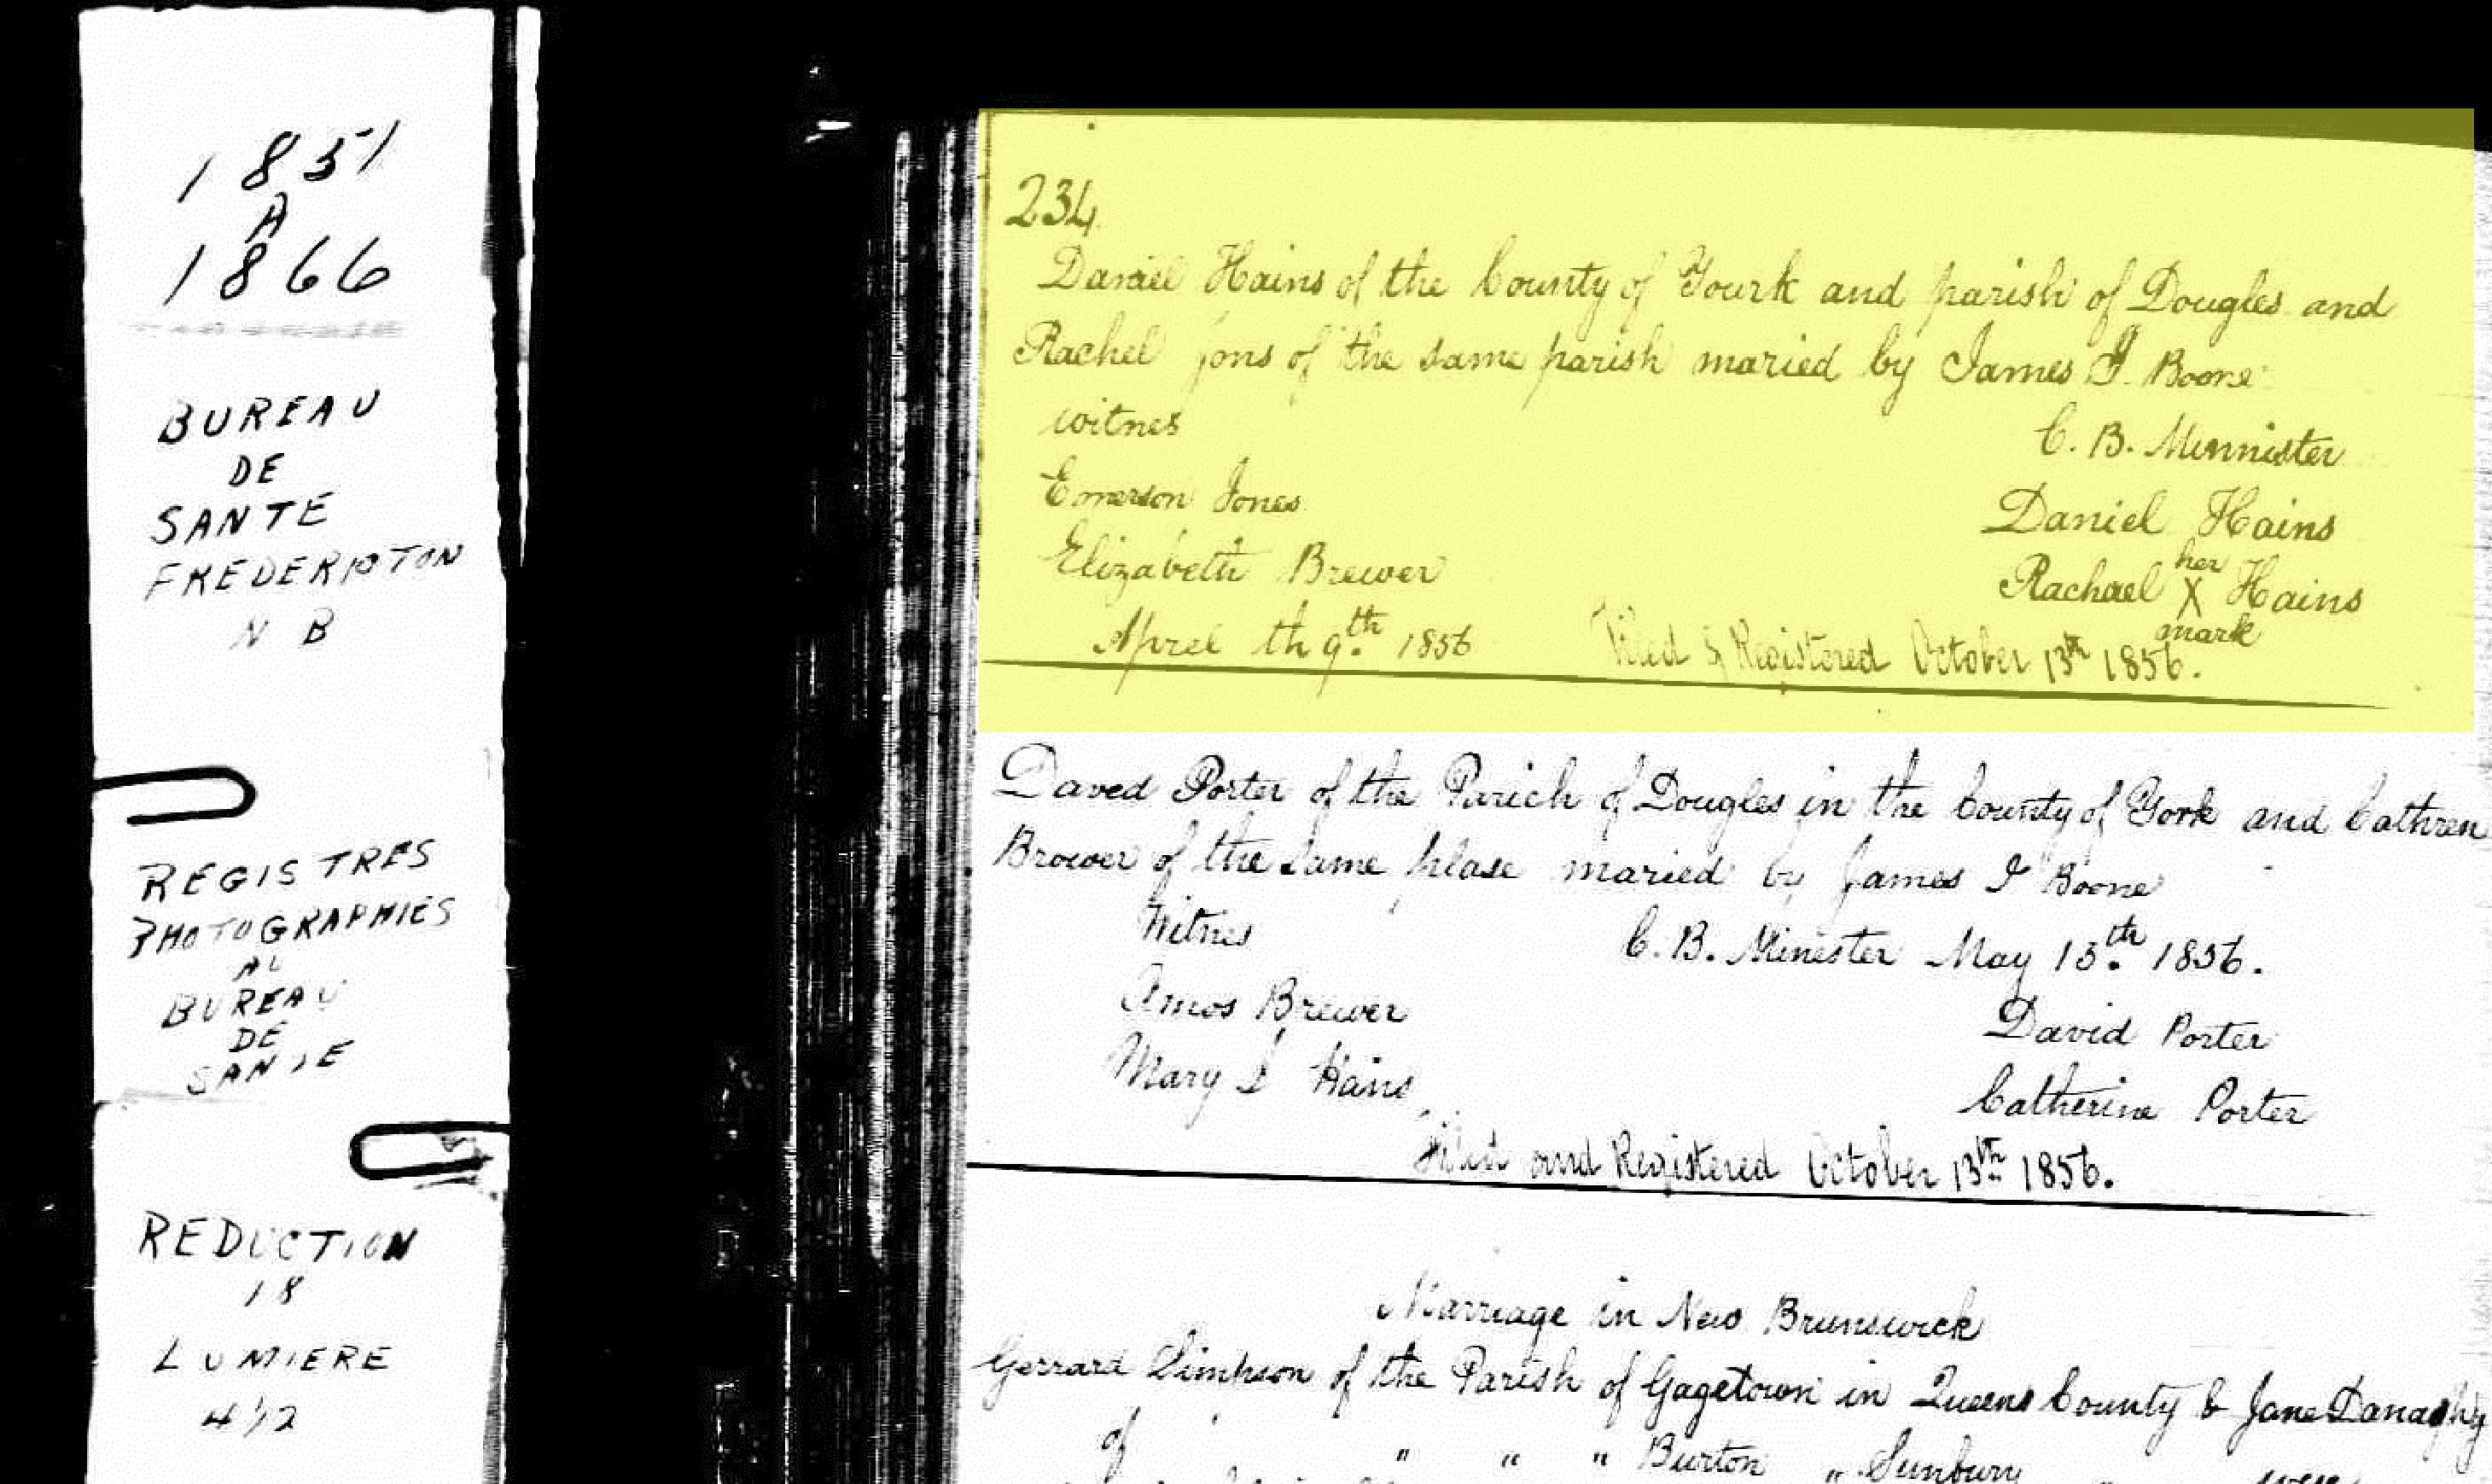 1851
A
1866
BUREAU
DE
SANTE
FREDERICTON
N B
REGISTRES
PHOTOGRAPHIES
AU
BUREAU
DE
SANTE
REDUCTION
18
LUMIERE
4 1/2
234
Daniel Hains of the County of Yourk and parish of Dougles and
Rachel Jons of the same parish maried by James I. Boone
witnes C. B. Minnister
Emerson Jones Daniel Hains
Elizabeth Brewer Rachael her X mark Hains
Aprel th 9th. 1856 Filed & Registered October 13th 1856.
Daved Porter of the Parich of Dougles in the County of York and Cathren
Brower of the same plase maried by James I Boone
Witnes C. B. Minester May 15th. 1856.
Amos Brewer David Porter
Mary Hains Catherine Porter
Filed and Registered October 13th 1856.
Marriage in New Brunswick
Gerrard Simpson of the Parish of Gagetown in Queens County & Jane Danaghy
of " " " Burton " Sunbury "